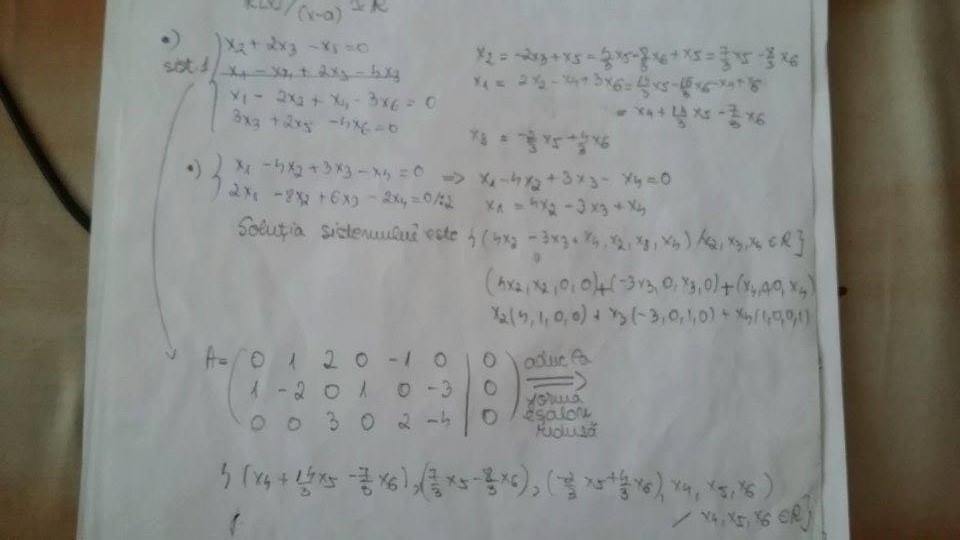 (x-a)
•) x2 + 2x3 - x5 = 0
sist.1
x1 - 2x2 + x4 - 3x6 = 0
3x3 + 2x5 - 4x6 = 0
x2 = -2x3 + x5 = 4/3 x5 - 8/3 x6 + x5 = 7/3 x5 - 8/3 x6
x1 = 2x2 - x4 + 3x6 =
= x4 + 14/3 x5 - 7/3 x6
x3 = -2/3 x5 + 4/3 x6
•) { x1 - 4x2 + 3x3 - x4 = 0 => x1 - 4x2 + 3x3 - x4 = 0
2x1 - 8x2 + 6x3 - 2x4 = 0 /:2
x1 = 4x2 - 3x3 + x4
Soluția sistemului este { (4x2 - 3x3 + x4, x2, x3, x4) / x2, x3, x4 ∈ R }
(4x2, x2, 0, 0) + (-3x3, 0, x3, 0) + (x4, 0, 0, x4)
x2(4, 1, 0, 0) + x3(-3, 0, 1, 0) + x4(1, 0, 0, 1)
A = ( 0 1 2 0 -1 0 | 0 ) aduc la
1 -2 0 1 0 -3 | 0 => forma
0 0 3 0 2 -4 | 0 eșalon
redusă
{ (x4 + 14/3 x5 - 7/3 x6), (7/3 x5 - 8/3 x6), (-2/3 x5 + 4/3 x6), x4, x5, x6)
/ x4, x5, x6 ∈ R }